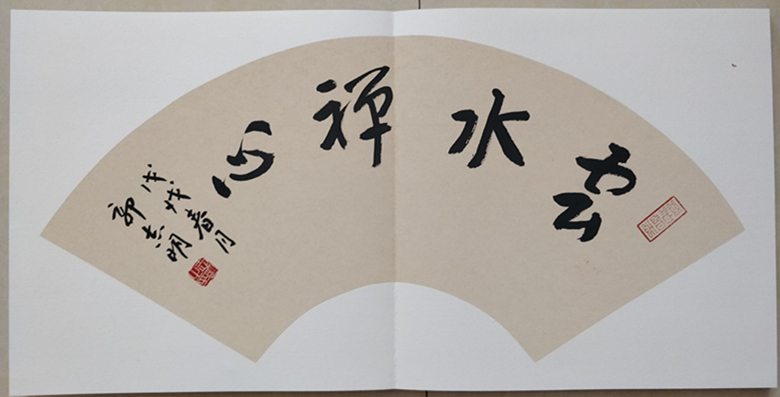 雲水禪心
戊戌春月
郭志明